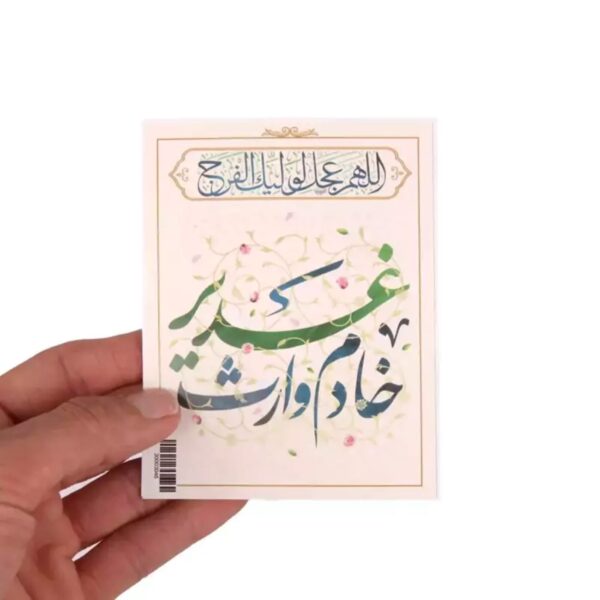 اللهم عجل لولیك الفرج
خادم وارث غدیر